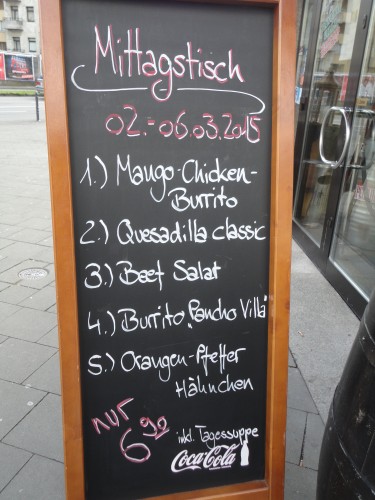 Mittagstisch
02.-06.03.2015
1.) Mango-Chicken-
Burrito
2.) Quesadilla classic
3.) Beef Salat
4.) Burrito „Pancho Villa"
5.) Orangen-Pfeffer
Hähnchen
nur
6 90
inkl. Tagessuppe
Coca-Cola